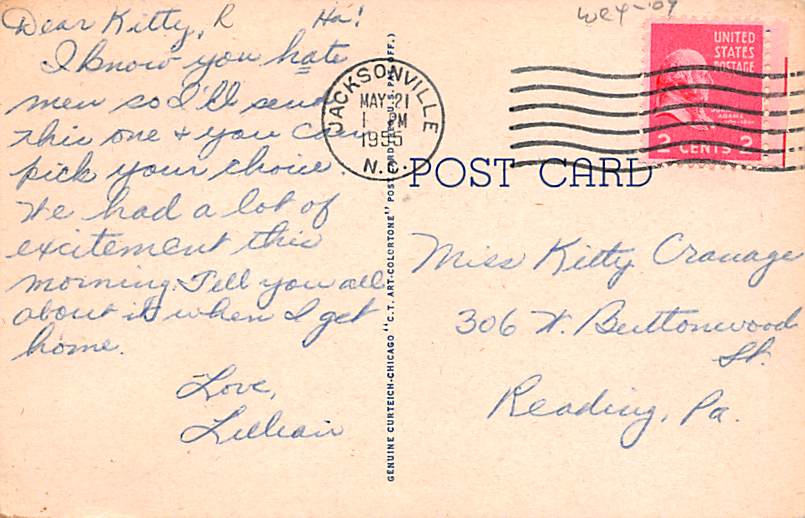 Dear Kitty, R Ha!
I know you hate
men so I'll send
this one & you can
pick your choice.
We had a lot of
excitement this
morning. Tell you all
about it when I get
home.
Love,
Lillian
GENUINE CURTEICH-CHICAGO "C.T. ART-COLORTONE" POST CARD (REG. U.S. PAT. OFF.)
JACKSONVILLE
MAY 21
1 PM
1955
N.C.
UNITED
STATES
POSTAGE
ADAMS
2 CENTS 2
POST CARD
Miss Kitty Cranage
306 W. Buttonwood
St.
Reading, Pa.